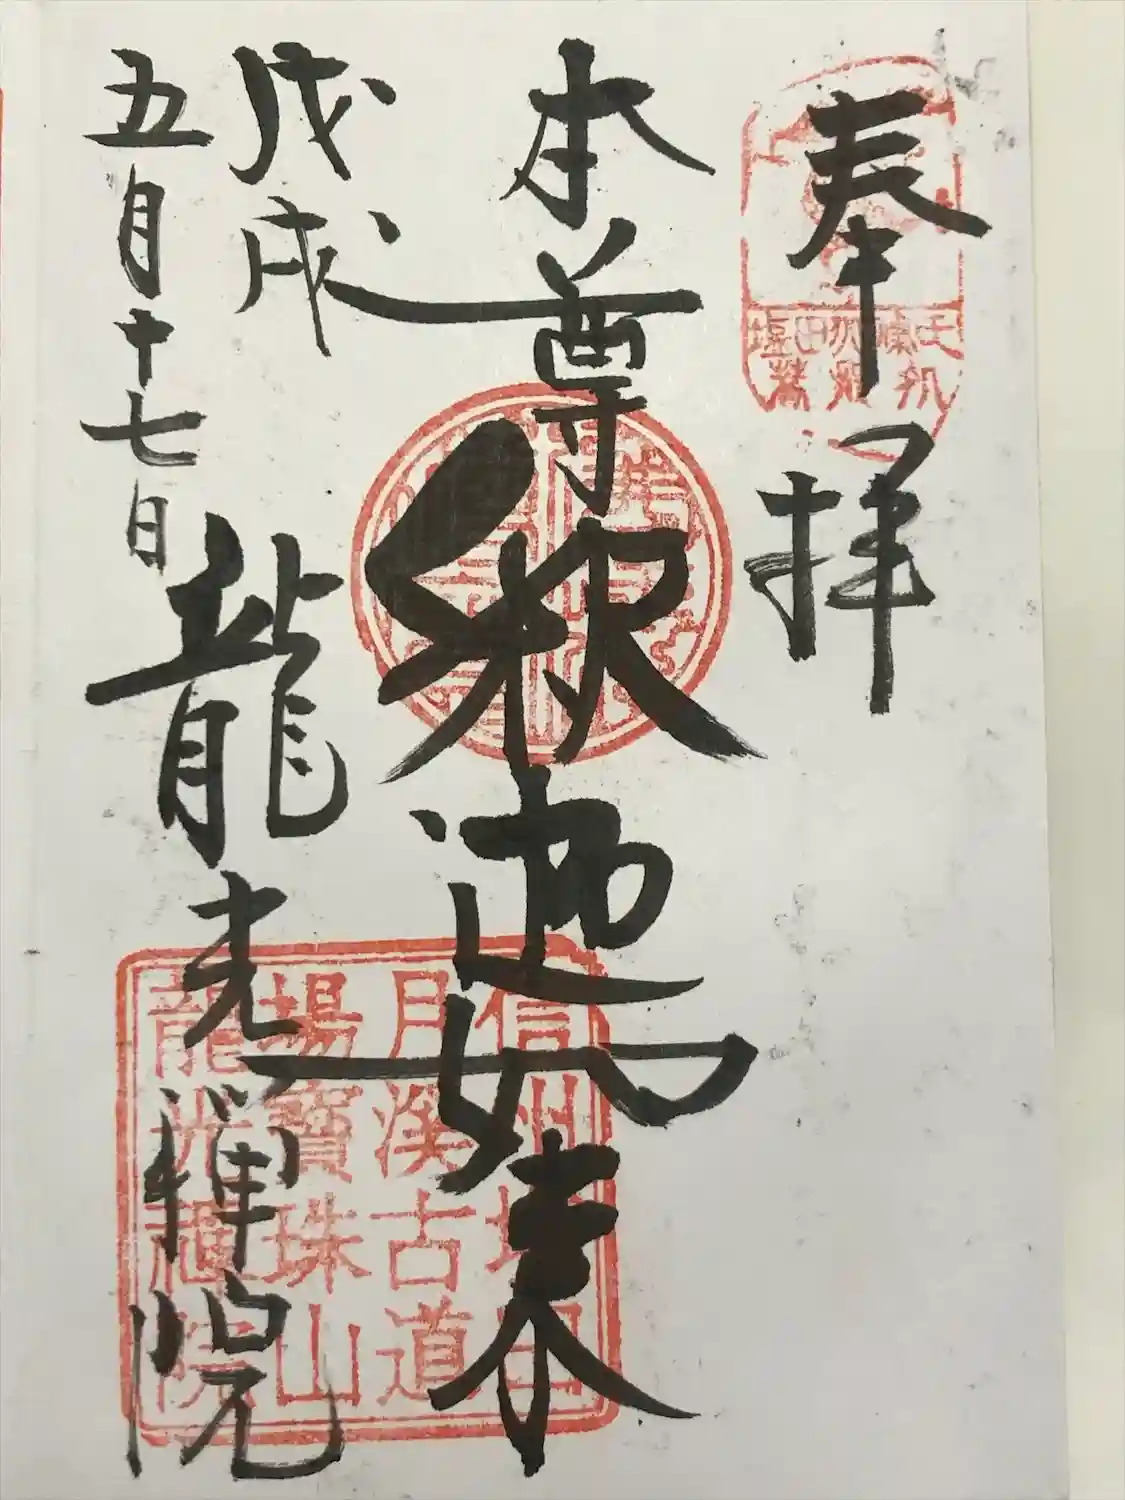 奉拝
本尊釈迦如来
戊戌
五月十七日
龍光禅院
信州塩田
月溪古道
場寶珠山
龍光禪院